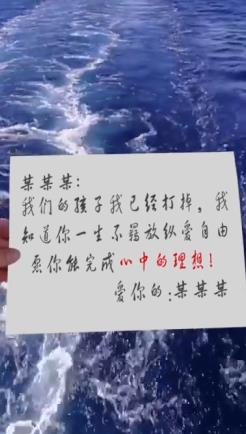 某某某:
我们的孩子我已经打掉，我
知道你一生不羁放纵爱自由
愿你能完成心中的理想!
爱你的:某某某